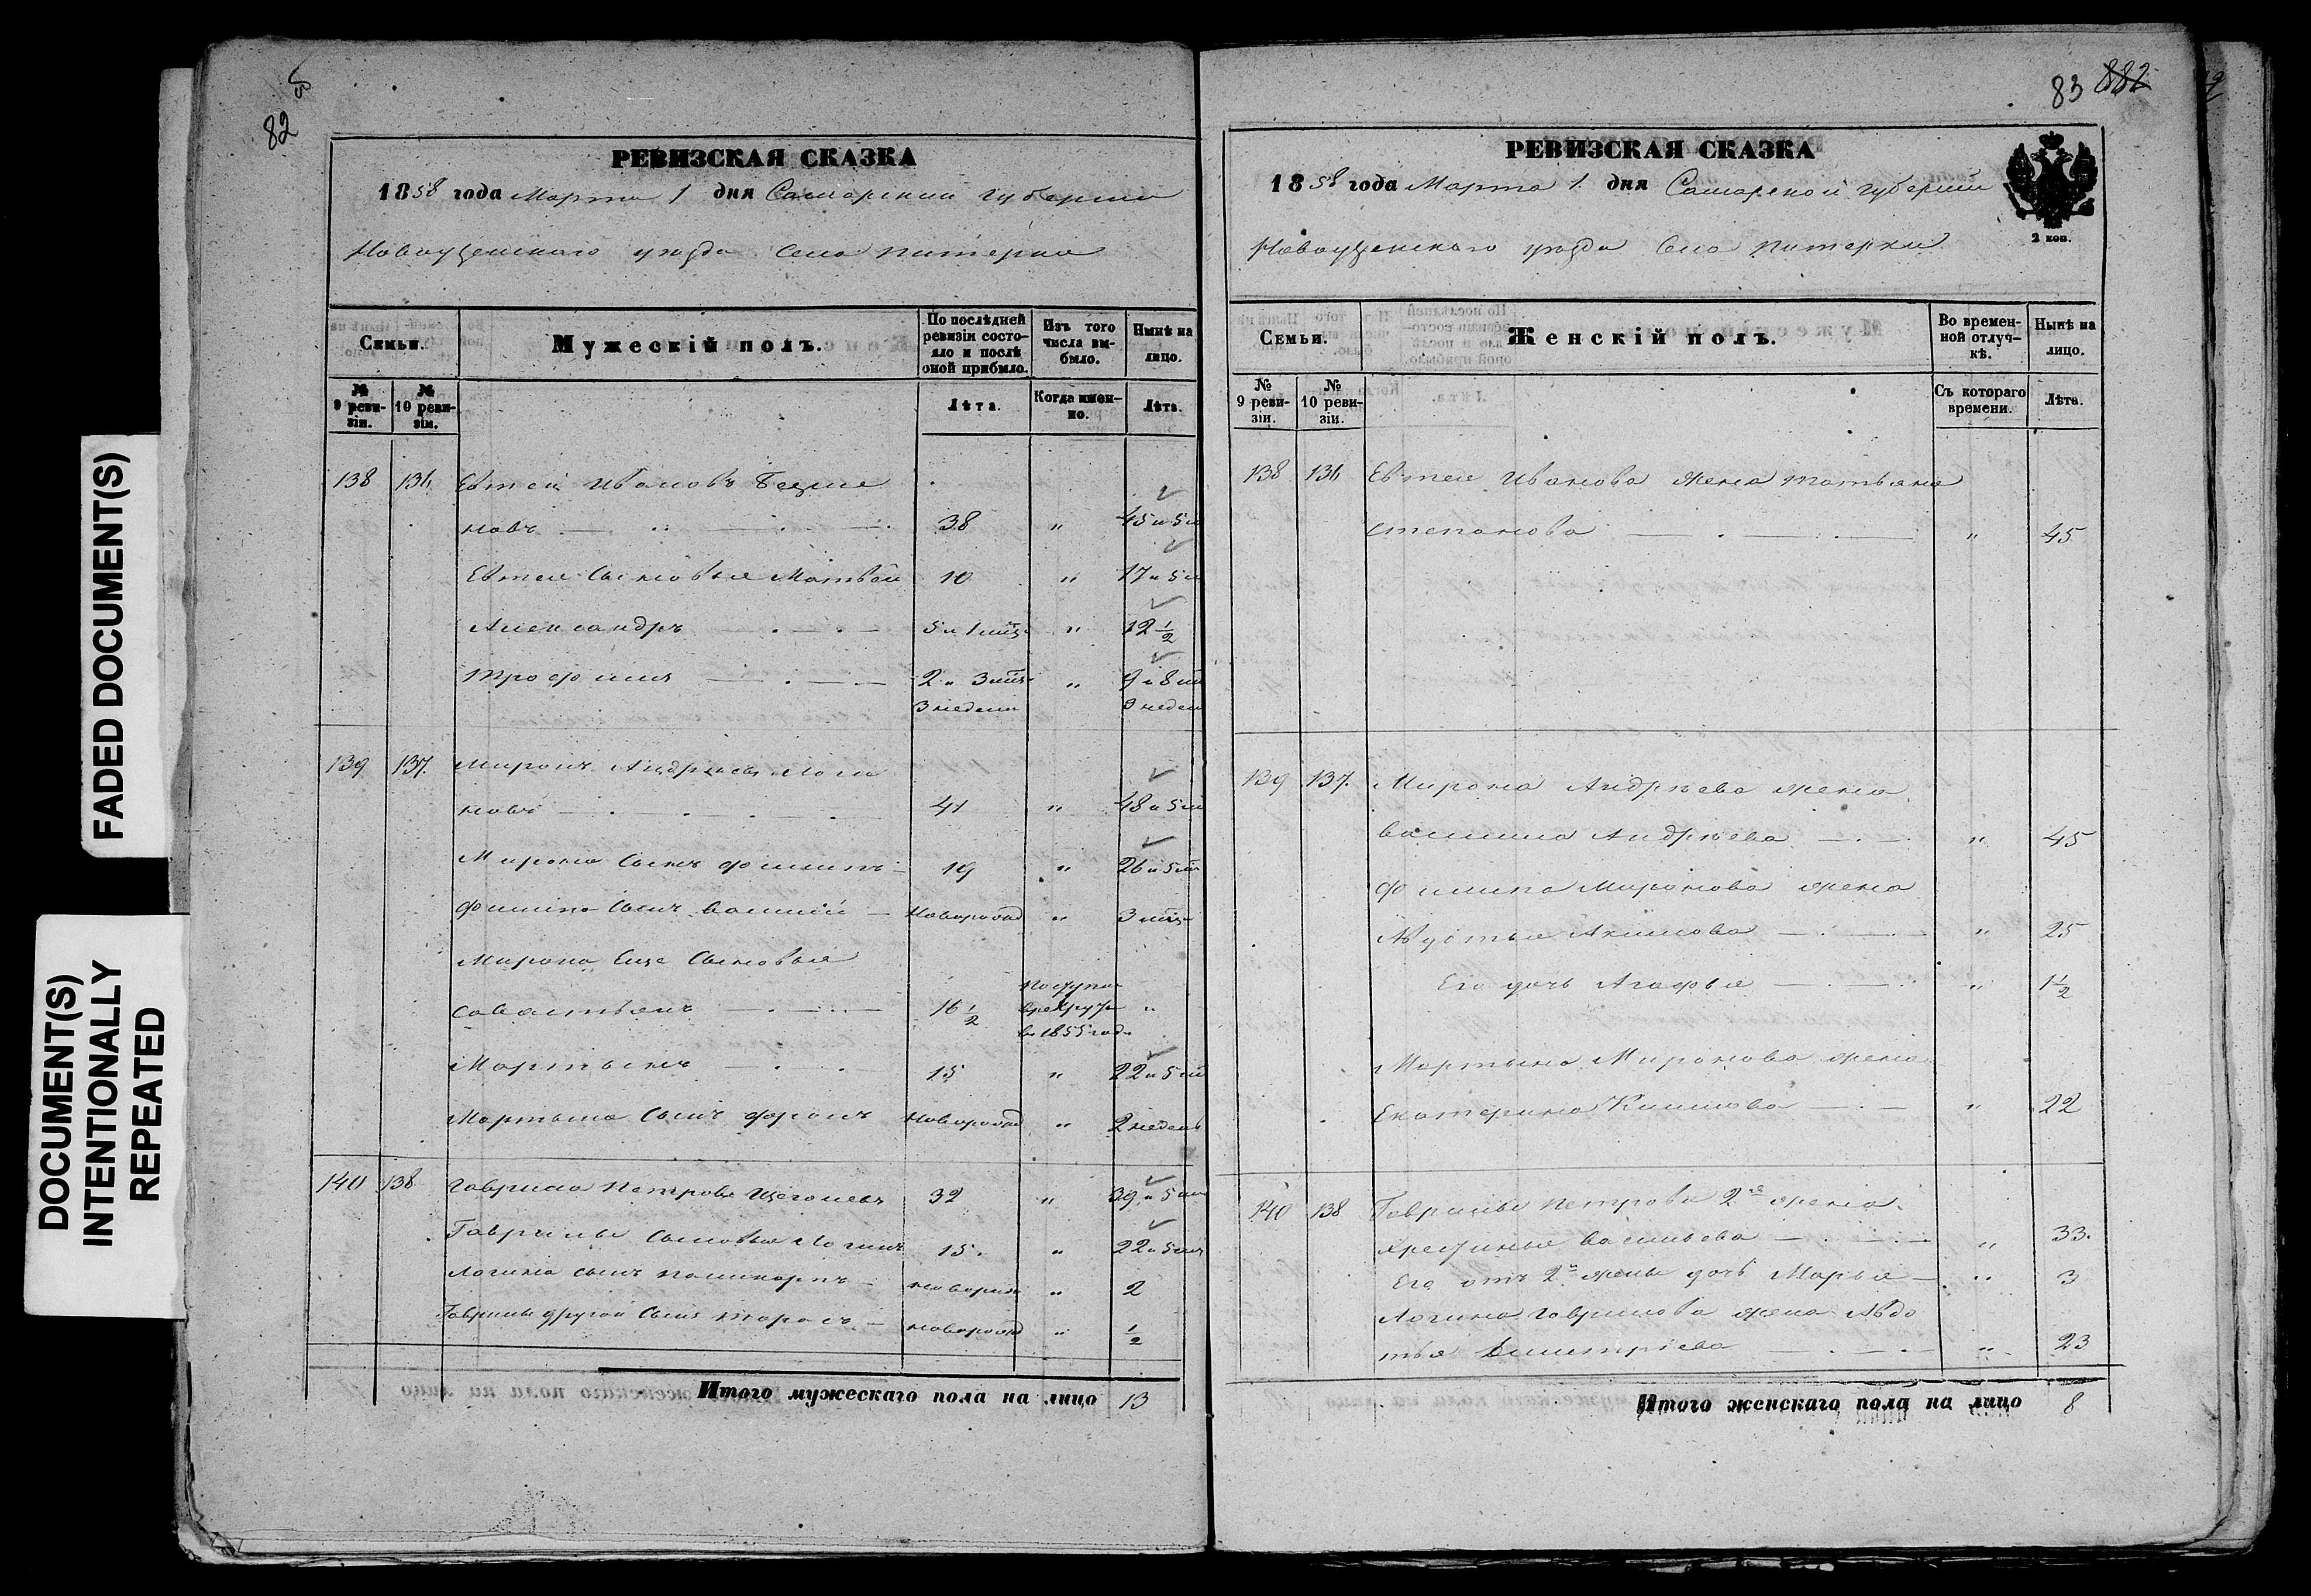 FADED DOCUMENT(S)
DOCUMENT(S)
INTENTIONALLY
REPEATED
82
РЕВИЗСКАЯ СКАЗКА
1858 года Марта 1 дня Самарской губернии
Новоузенскаго уезда Села Питерка
Семьи.
Мужескій полъ.
По послѣдней ревизіи состо-яло и послѣ оной прибыло.
Изъ того числа вы-было.
Нынѣ на лицо.
№ 9 реви-зіи.
№ 10 реви-зіи.
Лѣта.
Когда имен-но.
Лѣта.
138 136 Евтей Ивановъ
новъ 38 " 45 и 5 м
Евтея Сыновья Матвей 10 " 17 и 5 м
Александръ 5 и 1 мѣц " 12 1/2
Трофимъ 2 и 3 мѣц " 9 и 8 м
3 недели 3 недел
139 137. Миронъ Андреевъ
новъ 41 " 48 и 5 м
Мирона Сынъ Филипъ 19 " 26 и 5 м
Филипа Сынъ Василий Новорожд " 3 мѣц
Мирона Еще Сыновья
Савастьянъ 16 1/2 Поступил в рекруты в 1855 году "
Мартынъ 15 " 22 и 5 м
Мартына Сынъ Фролъ Новорожд " 2 недель
140 138 Гаврила Петровъ Щеголевъ 32 " 39 и 5 м
Гаврилы Сыновья Логинъ 15. " 22 и 5 м
Логина сынъ Поликарпъ новорож " 2
Гаврилы другой Сынъ Тарасъ новорожд " 1/2
Итого мужескаго пола на лицо 13
83 882
РЕВИЗСКАЯ СКАЗКА
1858 года Марта 1. дня Самарской губернии
Новоузенскаго уезда Села Питерки
2 коп.
Семьи.
Женскій полъ.
Во времен-ной отлуч-кѣ.
Нынѣ на лицо.
№ 9 реви-зіи.
№ 10 реви-зіи.
Съ котораго времени.
Лѣта.
138 136 Евтея Иванова жена Татьяна
Степанова " 45
139 137. Мирона Андреева жена
Василиса Андреева " 45
Филипа Миронова жена
Авдотья Акимова " 25
Его дочь Агафья " 1 1/2
Мартына Миронова жена
Екатерина Климова " 22
140 138 Гаврилы Петрова 2я жена
Хрестинья Васильева " 33.
Его отъ 2й жены дочь Марья " 3
Логина Гаврилова жена Авдо
тья Дмитріева " 23
Итого женскаго пола на лицо 8